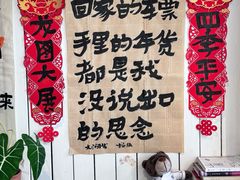 回家的车票
手里的年货
都是我
没说出口
的思念
龙图大展
四季平安
来